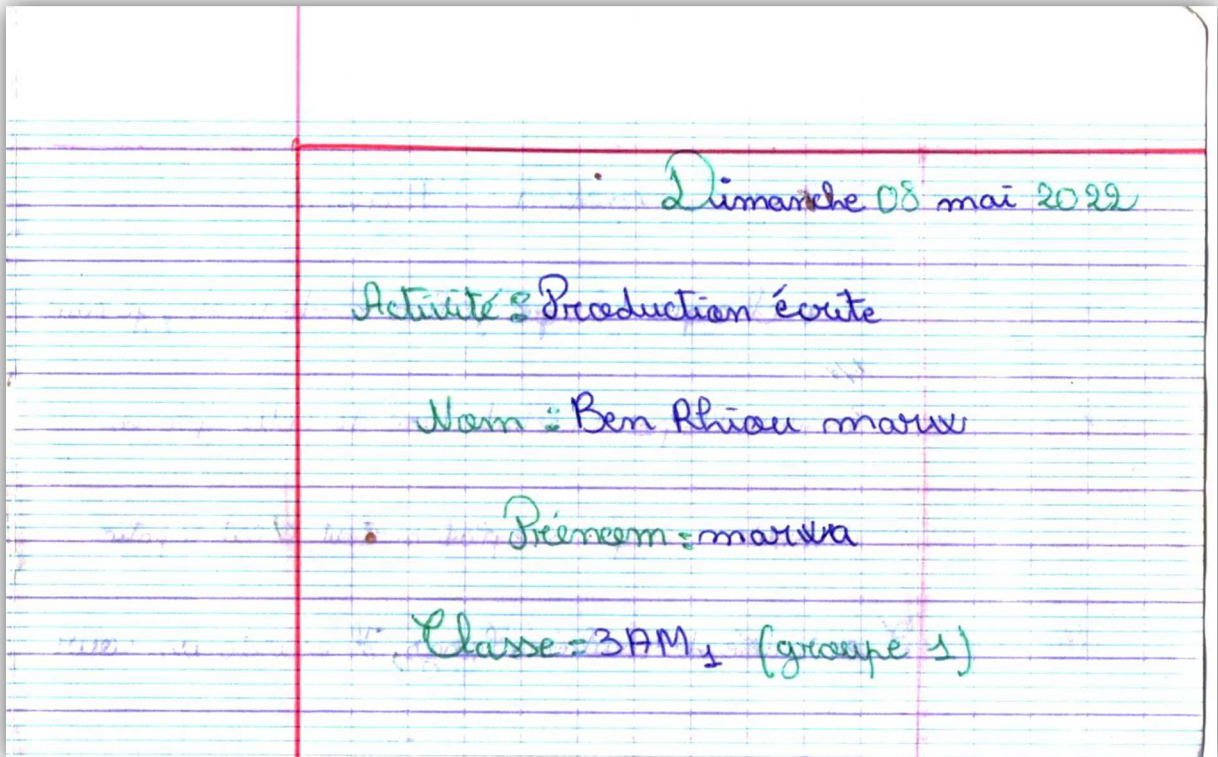 Dimanche 08 mai 2022
Activité : Production écrite
Nom : Ben Rhiou marw
Prénom : marwa
Classe : 3AM1 (groupe 1)